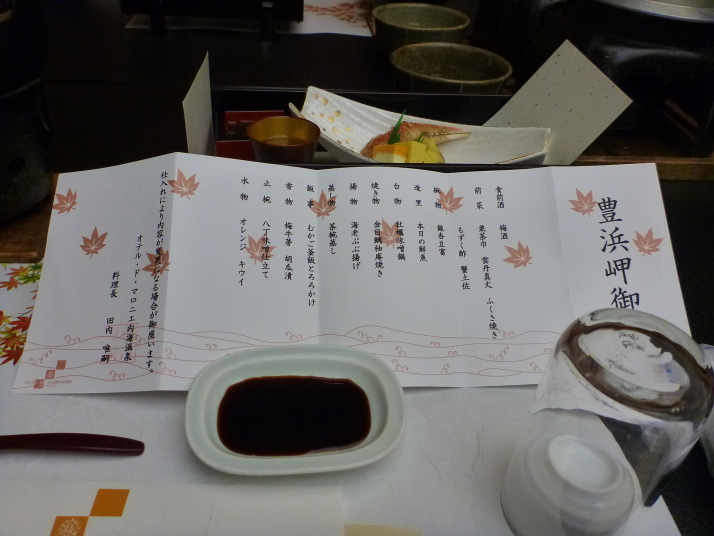 豊浜岬御
食前酒 梅酒
前菜 栗茶巾 雲丹真丈 ふくさ焼き
もずく酢 蟹土佐
椀物
造里 本日の鮮魚
台物 牡蠣味噌鍋
焼き物 金目鯛柚庵焼き
揚物 海老ぶぶ揚げ
蒸し物 茶椀蒸し
飯事 むかご釜飯とろろかけ
香物 梅牛蒡 胡瓜漬
止椀 八丁味噌仕立て
水物 オレンジ キウイ
仕入れにより内容が変更になる場合が御座います。
オテル・ド・マロニエ内海温泉
料理長 田内 唯嗣